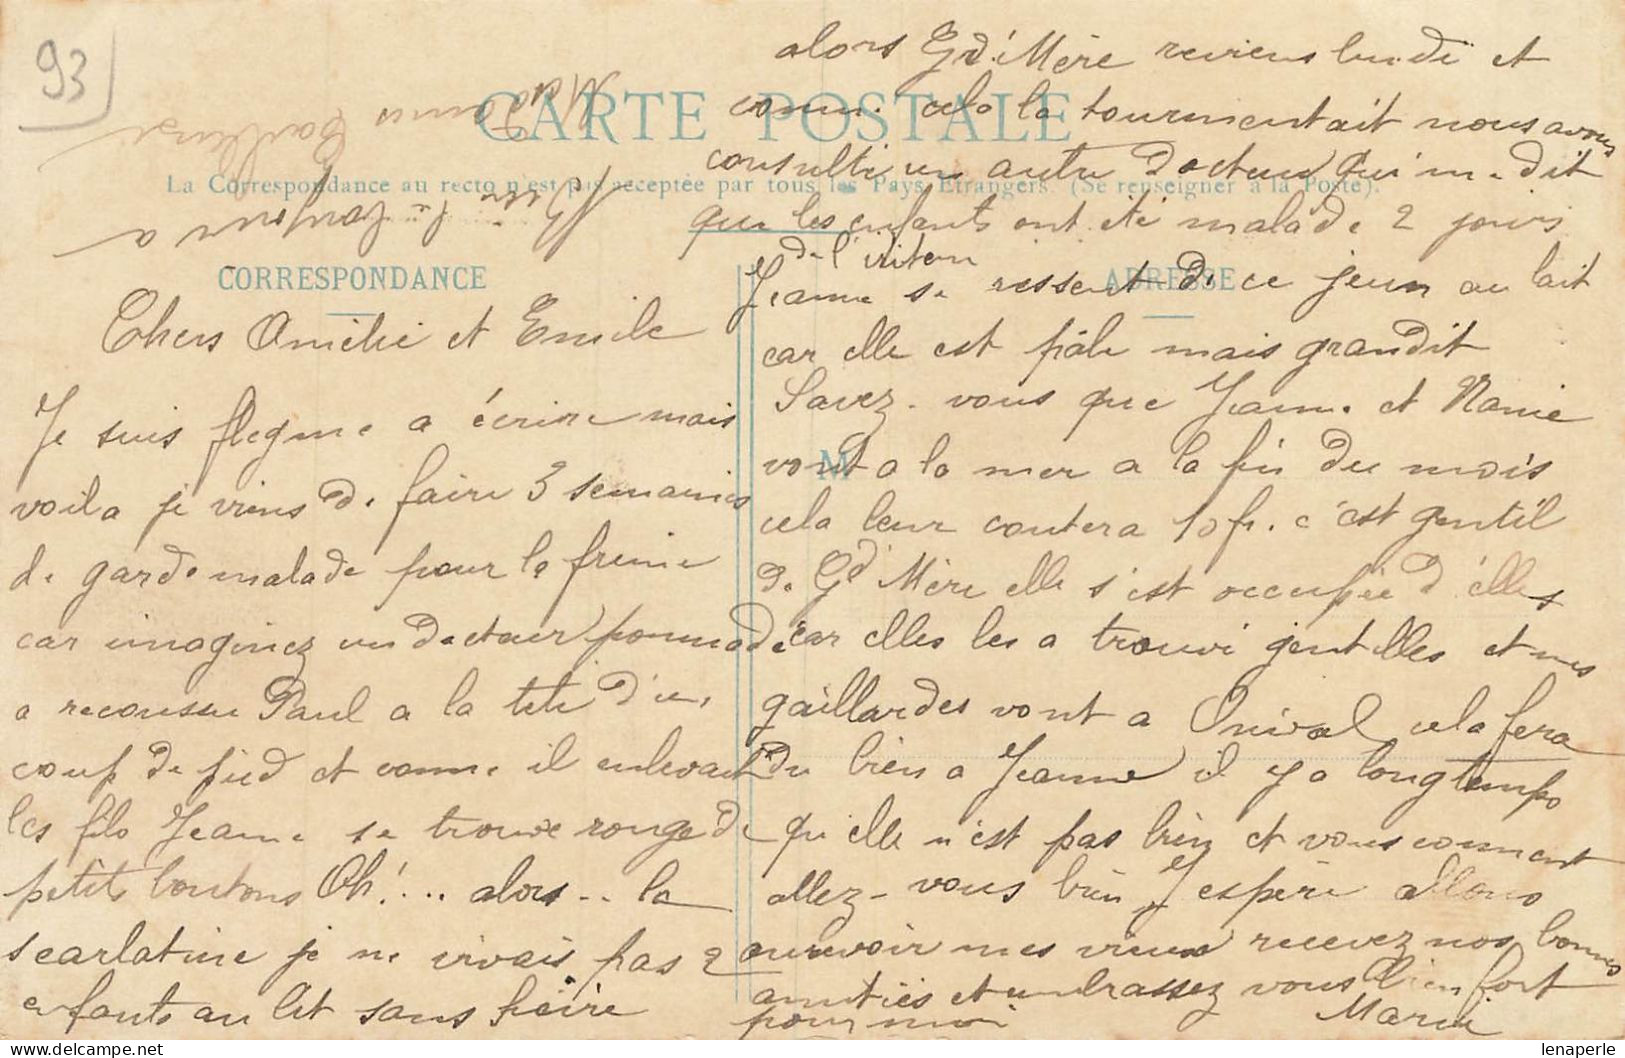 93
CARTE POSTALE
La Correspondance au recto n'est pas acceptée par tous les Pays Etrangers. (Se renseigner à la Poste).
CORRESPONDANCE
ADRESSE
M
Chers Amélie et Emile
Je suis flegme a écrire mais
voila je viens de faire 3 semaines
de garde malade pour la frime
car imaginez un docteur pommade
a recousu Paul a la tete d'un
coup de pied et comme il enlevait
les fils Jeanne se trouve rouge de
petits boutons Oh!... alors.. la
scarlatine je ne vivais pas 2
enfants au lit sans fièvre
alors Gd Mère reviens lundi et
comme cela la tourmentait nous avons
consulté un autre docteur qui me dit
que les enfants ont été malade 2 jours
de l'
Jeanne se ressent de ce jeun au lait
car elle est pâle mais grandit
Savez-vous que Jeanne et Nanie
vont a la mer a la fin du mois
cela leur coutera 10 fr. c'est gentil
de Gd Mère elle s'est occupée d'elles
car elles les a trouvé gentilles et mes
gaillardes vont a Onival cela fera
du bien a Jeanne il y a longtemps
qu'elle n'est pas bien et vous comment
allez-vous bien J'espère allons
aurevoir mes vieux recevez nos bonnes
amitiés et embrassez vous bien fort
pour moi Marie
lenaperle